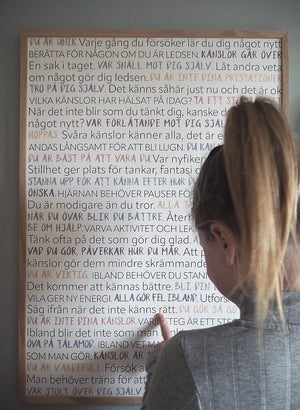 DU ÄR UNIK. Varje gång du försöker lär du dig något nytt
BERÄTTA FÖR NÅGON OM DU ÄR LEDSEN. KÄNSLOR GÅR ÖVER
En sak i taget. VAR SNÄLL MOT DIG SJÄLV. Låt andra veta
om något gör dig ledsen. DU ÄR INTE DINA PRESTATIONER
TRO PÅ DIG SJÄLV. Det känns såhär just nu och det är ok
VILKA KÄNSLOR HAR HÄLSAT PÅ IDAG? TA ETT
När det inte blir som du tänkt dig, kanske d
något nytt? VAR FÖRLÅTANDE MOT DIG SJ
HOPPAS. Svåra känslor känner alla, det är ok
ANDAS LÅNGSAMT FÖR ATT BLI LUGN. DU KAN
DU ÄR BÄST PÅ ATT VARA DU. Var nyfiken
Stillhet ger plats för tankar, fantasi och
STANNA UPP FÖR ATT KÄNNA EFTER HUR DU
ÖNSKA. HJÄRNAN BEHÖVER PAUSER FÖR
Du är modigare än du tror. ALLA
NÄR DU ÖVAR BLIR DU BÄTTRE. Återh
BE OM HJÄLP. VARVA AKTIVITET OCH
Tänk ofta på det som gör dig glad.
VAD DU GÖR, PÅVERKAR HUR DU MÅR. Att
känslor gör dem mindre skrämmande
DU ÄR VIKTIG. IBLAND BEHÖVER DU STANN
Det kommer att kännas bättre. BLI DIN
VILA GER NY ENERGI. ALLA GÖR FEL IBLAND. Utfors
Säg ifrån när det inte känns rätt. DU GÖR SÅ GO
DU ÄR INTE DINA KÄNSLOR. VARJE STEG ÄR ETT STE
Ibland blir det inte som man har tänkt
ÖVA PÅ TÅLAMOD. IBLAND VET MA
SOM MAN GÖR. KÄNSLOR ÄR SOM
DU ÄR VÄRDEFULL. Försök a
Man behöver träna för att
VAR STOLT ÖVER DIG SJÄLV